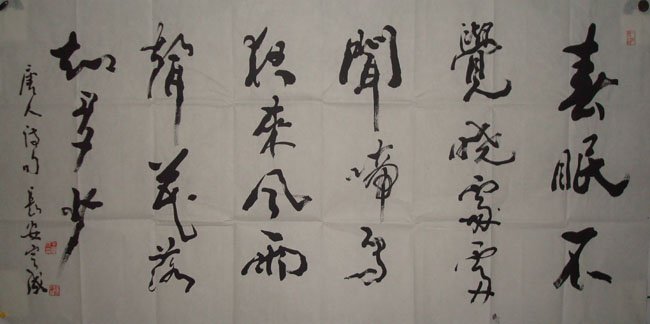 春眠不
覺晓處處
聞啼鳥
夜来风雨
聲花落
知多少
唐人诗句 長安